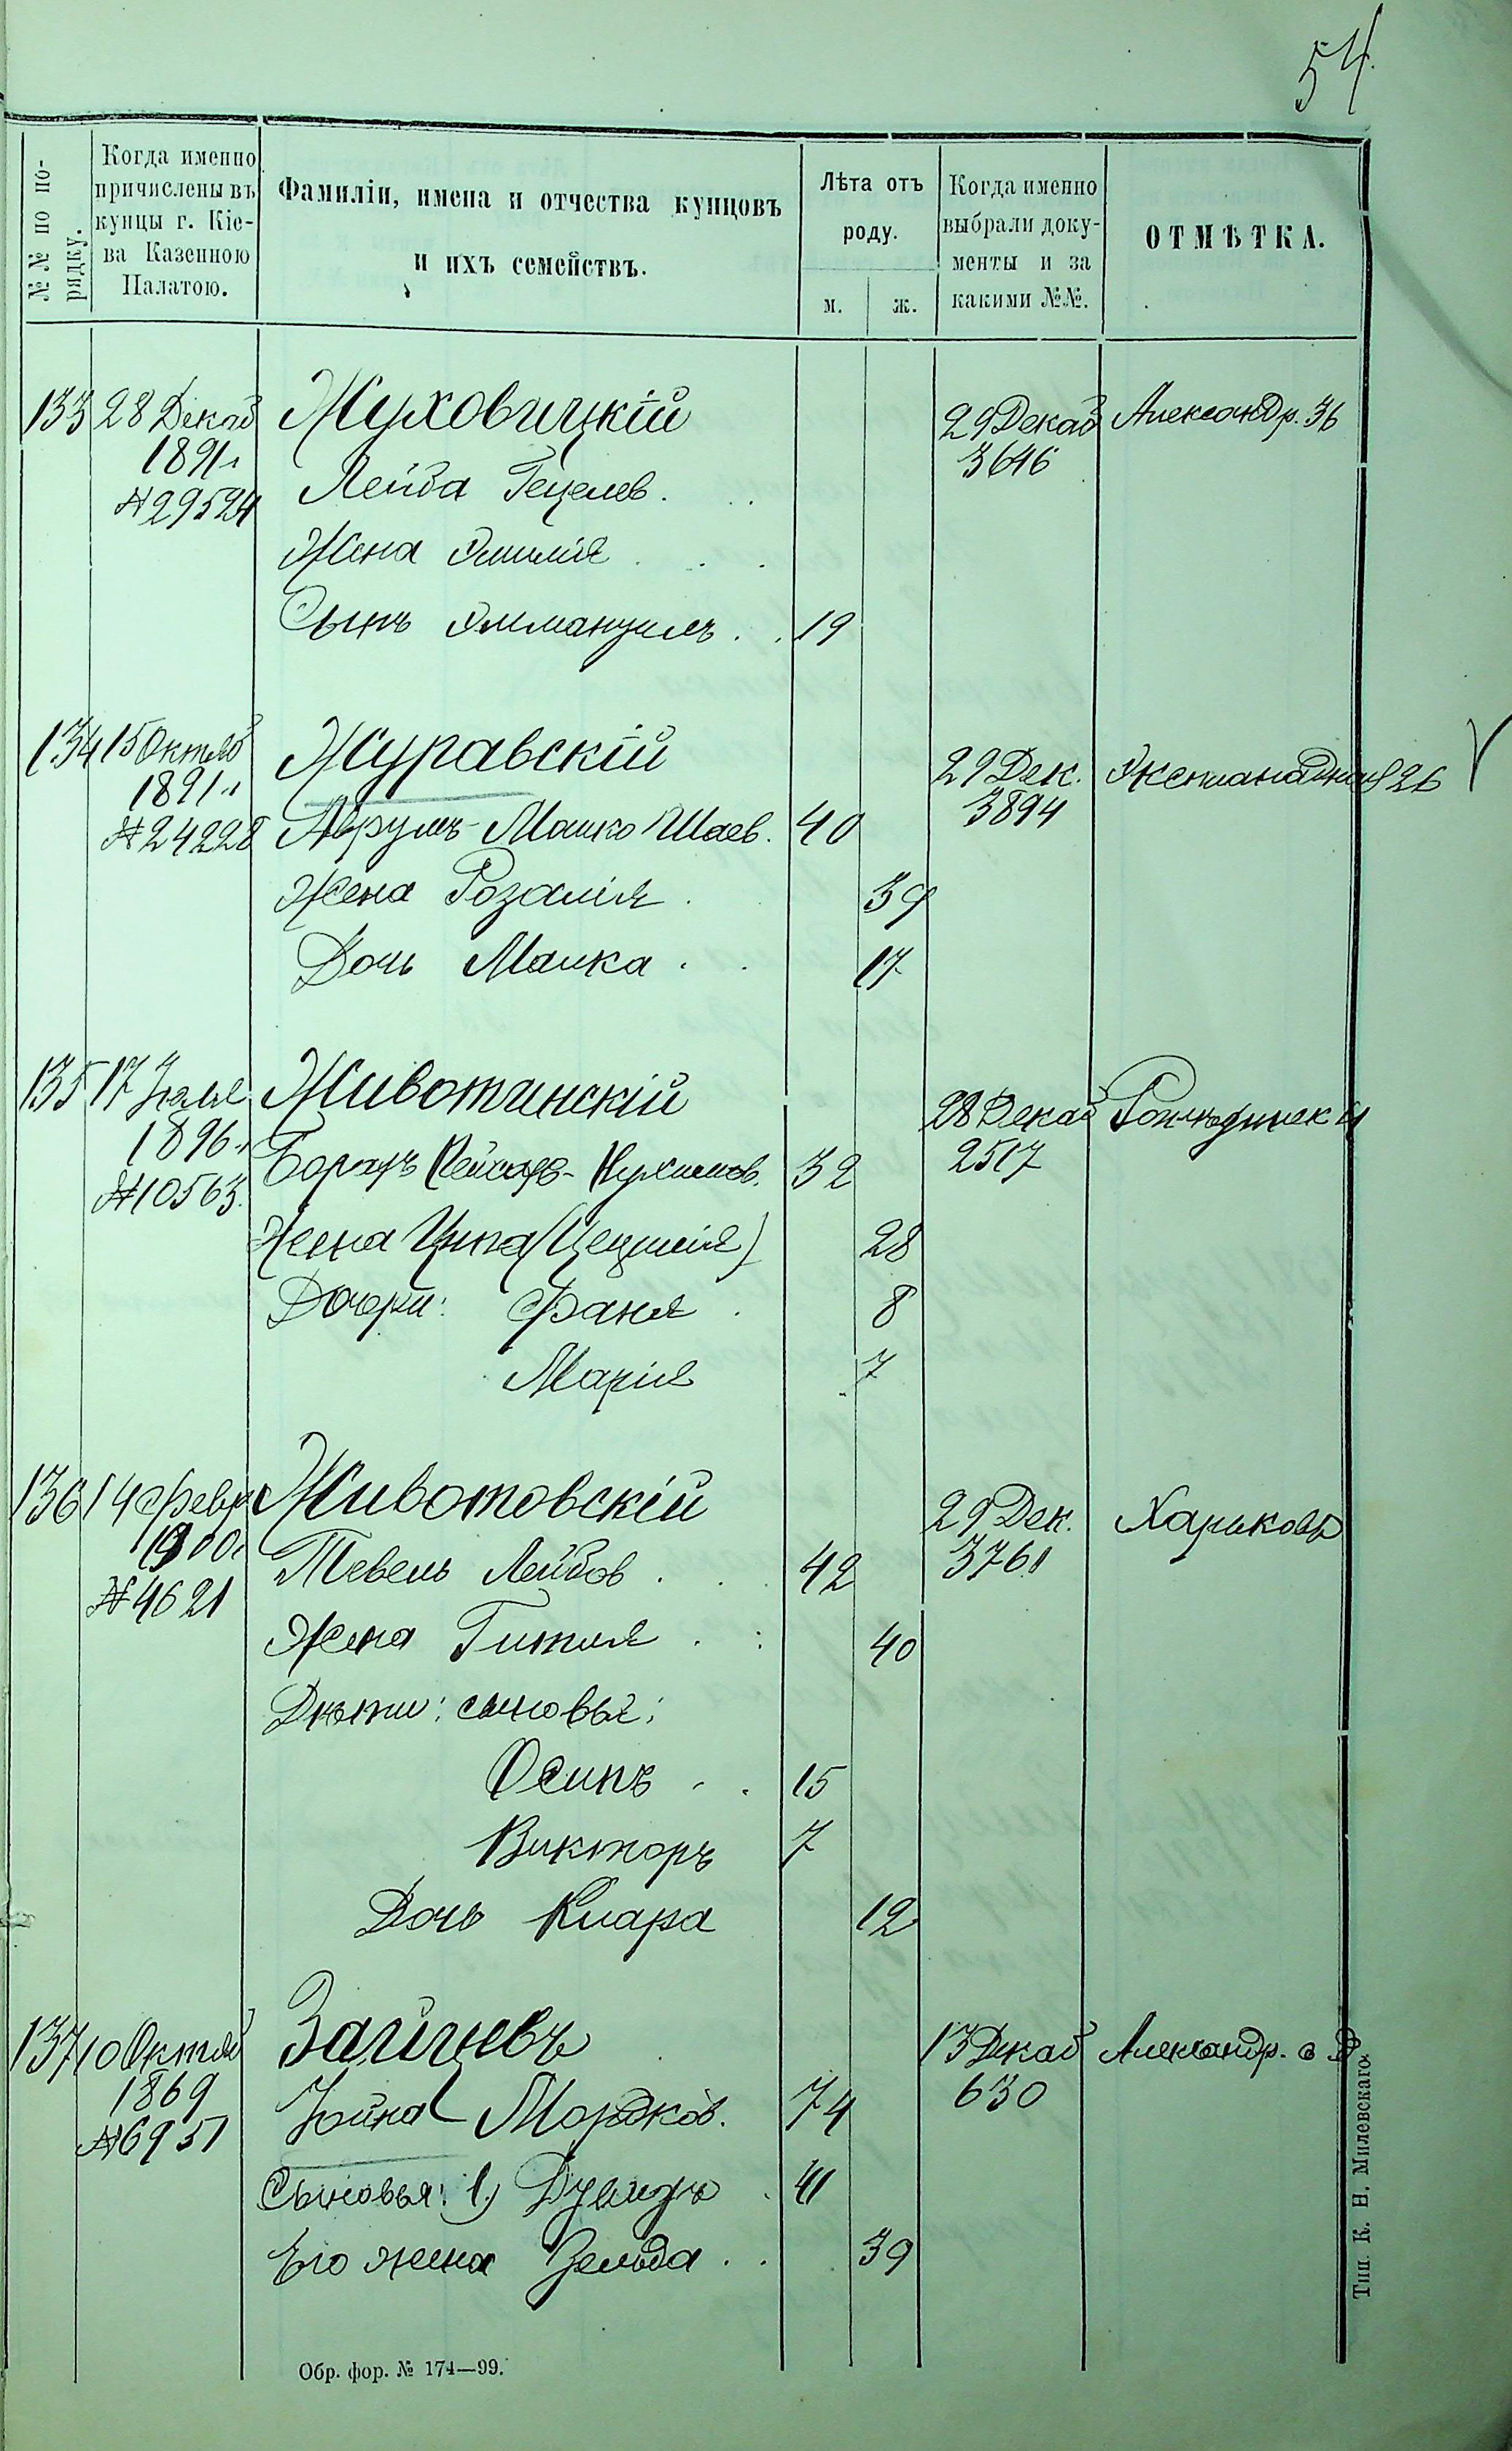 54.
№№ по по-
рядку.
Когда именно
причислены въ
купцы г. Кіе-
ва Казенною
Палатою.
Фамиліи, имена и отчества купцовъ
и ихъ семействъ.
Лѣта отъ
роду.
м. ж.
Когда именно
выбрали доку-
менты и за
какими №№.
ОТМѢТКА.
133 28 Декаб Жуховицкій 29 Декаб Александр. 36
1891 г. 3646
№ 29524 Лейба Гецелев.
Жена Эмилія
Сынъ Эммануилъ 19
134 15 Октяб Журавскій 29 Дек. 26
1891 г. 3894
№ 24228 Аврумъ-Мошко Шаев. 40
Жена Розалія 39
Дочь Малка 17
135 17 Животинскій 28 Декаб
1896 г. 2517
№ 10563. 32
Жена Ципа (Цецилія) 28
Дочери: Фаня 8
Марія 7
136 14 Февр Животовскій 29 Дек. Харьковъ
1900 г. 3761
№ 4621 Тевель Лейбов 42
Жена Гитля 40
Дѣти: сыновья:
Осипъ 15
Викторъ 7
Дочь Клара 12
137 10 Октяб Зайцевъ 13 Декаб Александр. с. д.
1869 630
№ 6951 Іойна Мордков. 74
Сыновья: 1) Дувидъ 41
Его жена Зельда 39
Обр. фор. № 174—99.
Тип. К. Н. Милевскаго.